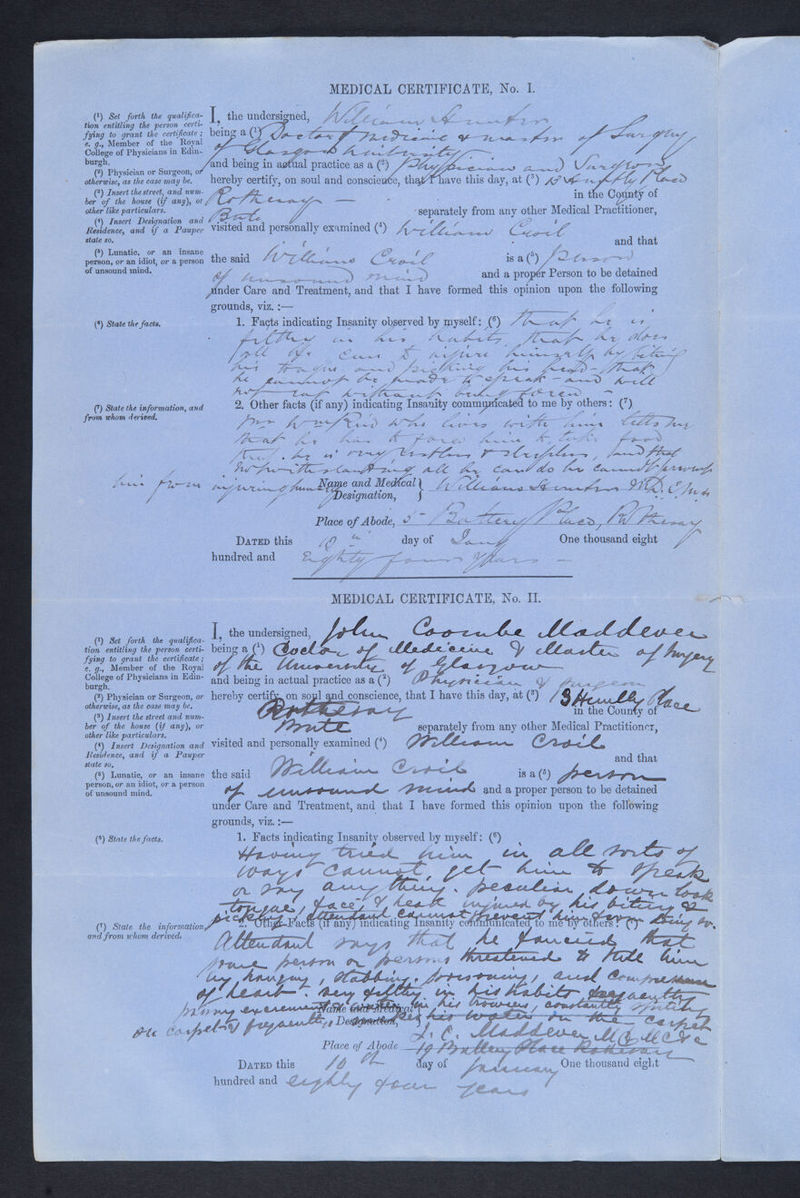 MEDICAL CERTIFICATE, No. I.
(¹) Set forth the qualifica-
tion entitling the person certi-
fying to grant the certificate;
e. g., Member of the Royal
College of Physicians in Edin-
burgh.
(²) Physician or Surgeon, or
otherwise, as the case may be.
(³) Insert the street, and num-
ber of the house (if any), or
other like particulars.
(⁴) Insert Designation and
Residence, and if a Pauper
state so.
(⁵) Lunatic, or an insane
person, or an idiot, or a person
of unsound mind.
I, the undersigned, William Hunter
being a (¹) Doctor of Medicine & Master of Surgery
of Glasgow University
and being in actual practice as a (²) Physician and Surgeon
hereby certify, on soul and conscience, that I have this day, at (³) 13 Place
Rothesay — in the County of
Bute separately from any other Medical Practitioner,
visited and personally examined (⁴) William Croil
and that
the said William Croil is a (⁵) Person
of unsound mind and a proper Person to be detained
under Care and Treatment, and that I have formed this opinion upon the following
grounds, viz. :—
(⁶) State the facts.
1. Facts indicating Insanity observed by myself: (⁶) That he is
filthy in his habits, that he does
all he can to injure himself by biting
his tongue and picking his head - that
he cannot be made to speak - and will
not eat without being forced —
(⁷) State the information, and
from whom derived.
2. Other facts (if any) indicating Insanity communicated to me by others: (⁷)
who lives with him tells me
that he has to force him to take food
that he is very restless & sleepless, and that
notwithstanding all he can do he cannot prevent
him from injuring himself
Name and Medical Designation, William Hunter M.D. C.M.
Place of Abode, 5 Battery Place, Rothesay
DATED this 10th day of Jany One thousand eight
hundred and Eighty four years —
MEDICAL CERTIFICATE, No. II.
(¹) Set forth the qualifica-
tion entitling the person certi-
fying to grant the certificate;
e. g., Member of the Royal
College of Physicians in Edin-
burgh.
(²) Physician or Surgeon, or
otherwise, as the case may be.
(³) Insert the street and num-
ber of the house (if any), or
other like particulars.
(⁴) Insert Designation and
Residence, and if a Pauper
state so.
(⁵) Lunatic, or an insane
person, or an idiot, or a person
of unsound mind.
I, the undersigned, John Coombe Maddever
being a (¹) Doctor of Medicine & Master of Surgery
of the University of Glasgow
and being in actual practice as a (²) Physician & Surgeon
hereby certify, on soul and conscience, that I have this day, at (³) 13 Place
Rothesay in the County of
Bute separately from any other Medical Practitioner,
visited and personally examined (⁴) William Croil
and that
the said William Croil is a (⁵) person
of unsound mind and a proper person to be detained
under Care and Treatment, and that I have formed this opinion upon the following
grounds, viz. :—
(⁶) State the facts.
1. Facts indicating Insanity observed by myself: (⁶)
Having tried him in all sorts of
ways cannot get him to speak
or say any thing. peculiar down look
tongue, face, & head injured by his biting &
picking, attendant cannot prevent him from doing so.
(⁷) State the information,
and from whom derived.
2. Other Facts (if any) indicating Insanity communicated to me by others: (⁷)
Attendant says that he fancied that
some person or persons threatened to kill him
by hanging, stabbing, poisoning, and compression
of heart. very filthy in his habits frequently
passing excrement in his trowsers, constantly spitting
on carpet & frequently his water on the carpet
Name and Medical Designation, J. C. Maddever M.D. M.C.
Place of Abode 19 Battery Place Rothesay
DATED this 10th day of January One thousand eight
hundred and eighty four years